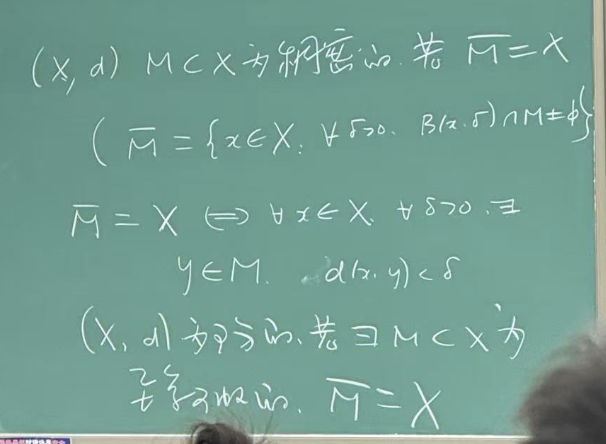 (X, d) M⊂X 为稠密的. 若 M̅=X
( M̅={x∈X. ∀δ>0. B(x,δ)∩M≠ϕ}
M̅ = X ⟺ ∀x∈X. ∀δ>0. ∃
y∈M. d(x,y)<δ
(X, d) 为可分的. 若 ∃ M⊂X 为
至多可数的. M̅=X